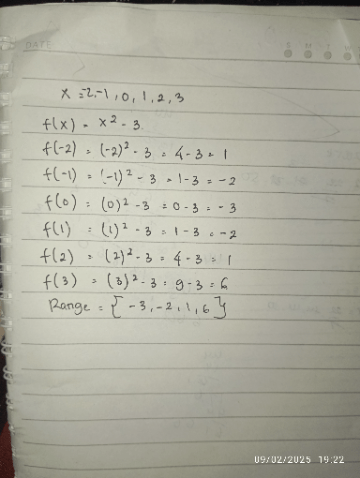 DATE
S M T W
x = -2, -1, 0, 1, 2, 3
f(x) = x² - 3
f(-2) = (-2)² - 3 = 4 - 3 = 1
f(-1) = (-1)² - 3 = 1 - 3 = -2
f(0) = (0)² - 3 = 0 - 3 = -3
f(1) = (1)² - 3 = 1 - 3 = -2
f(2) = (2)² - 3 = 4 - 3 = 1
f(3) = (3)² - 3 = 9 - 3 = 6
Range = {-3, -2, 1, 6}
09/02/2025 19:22